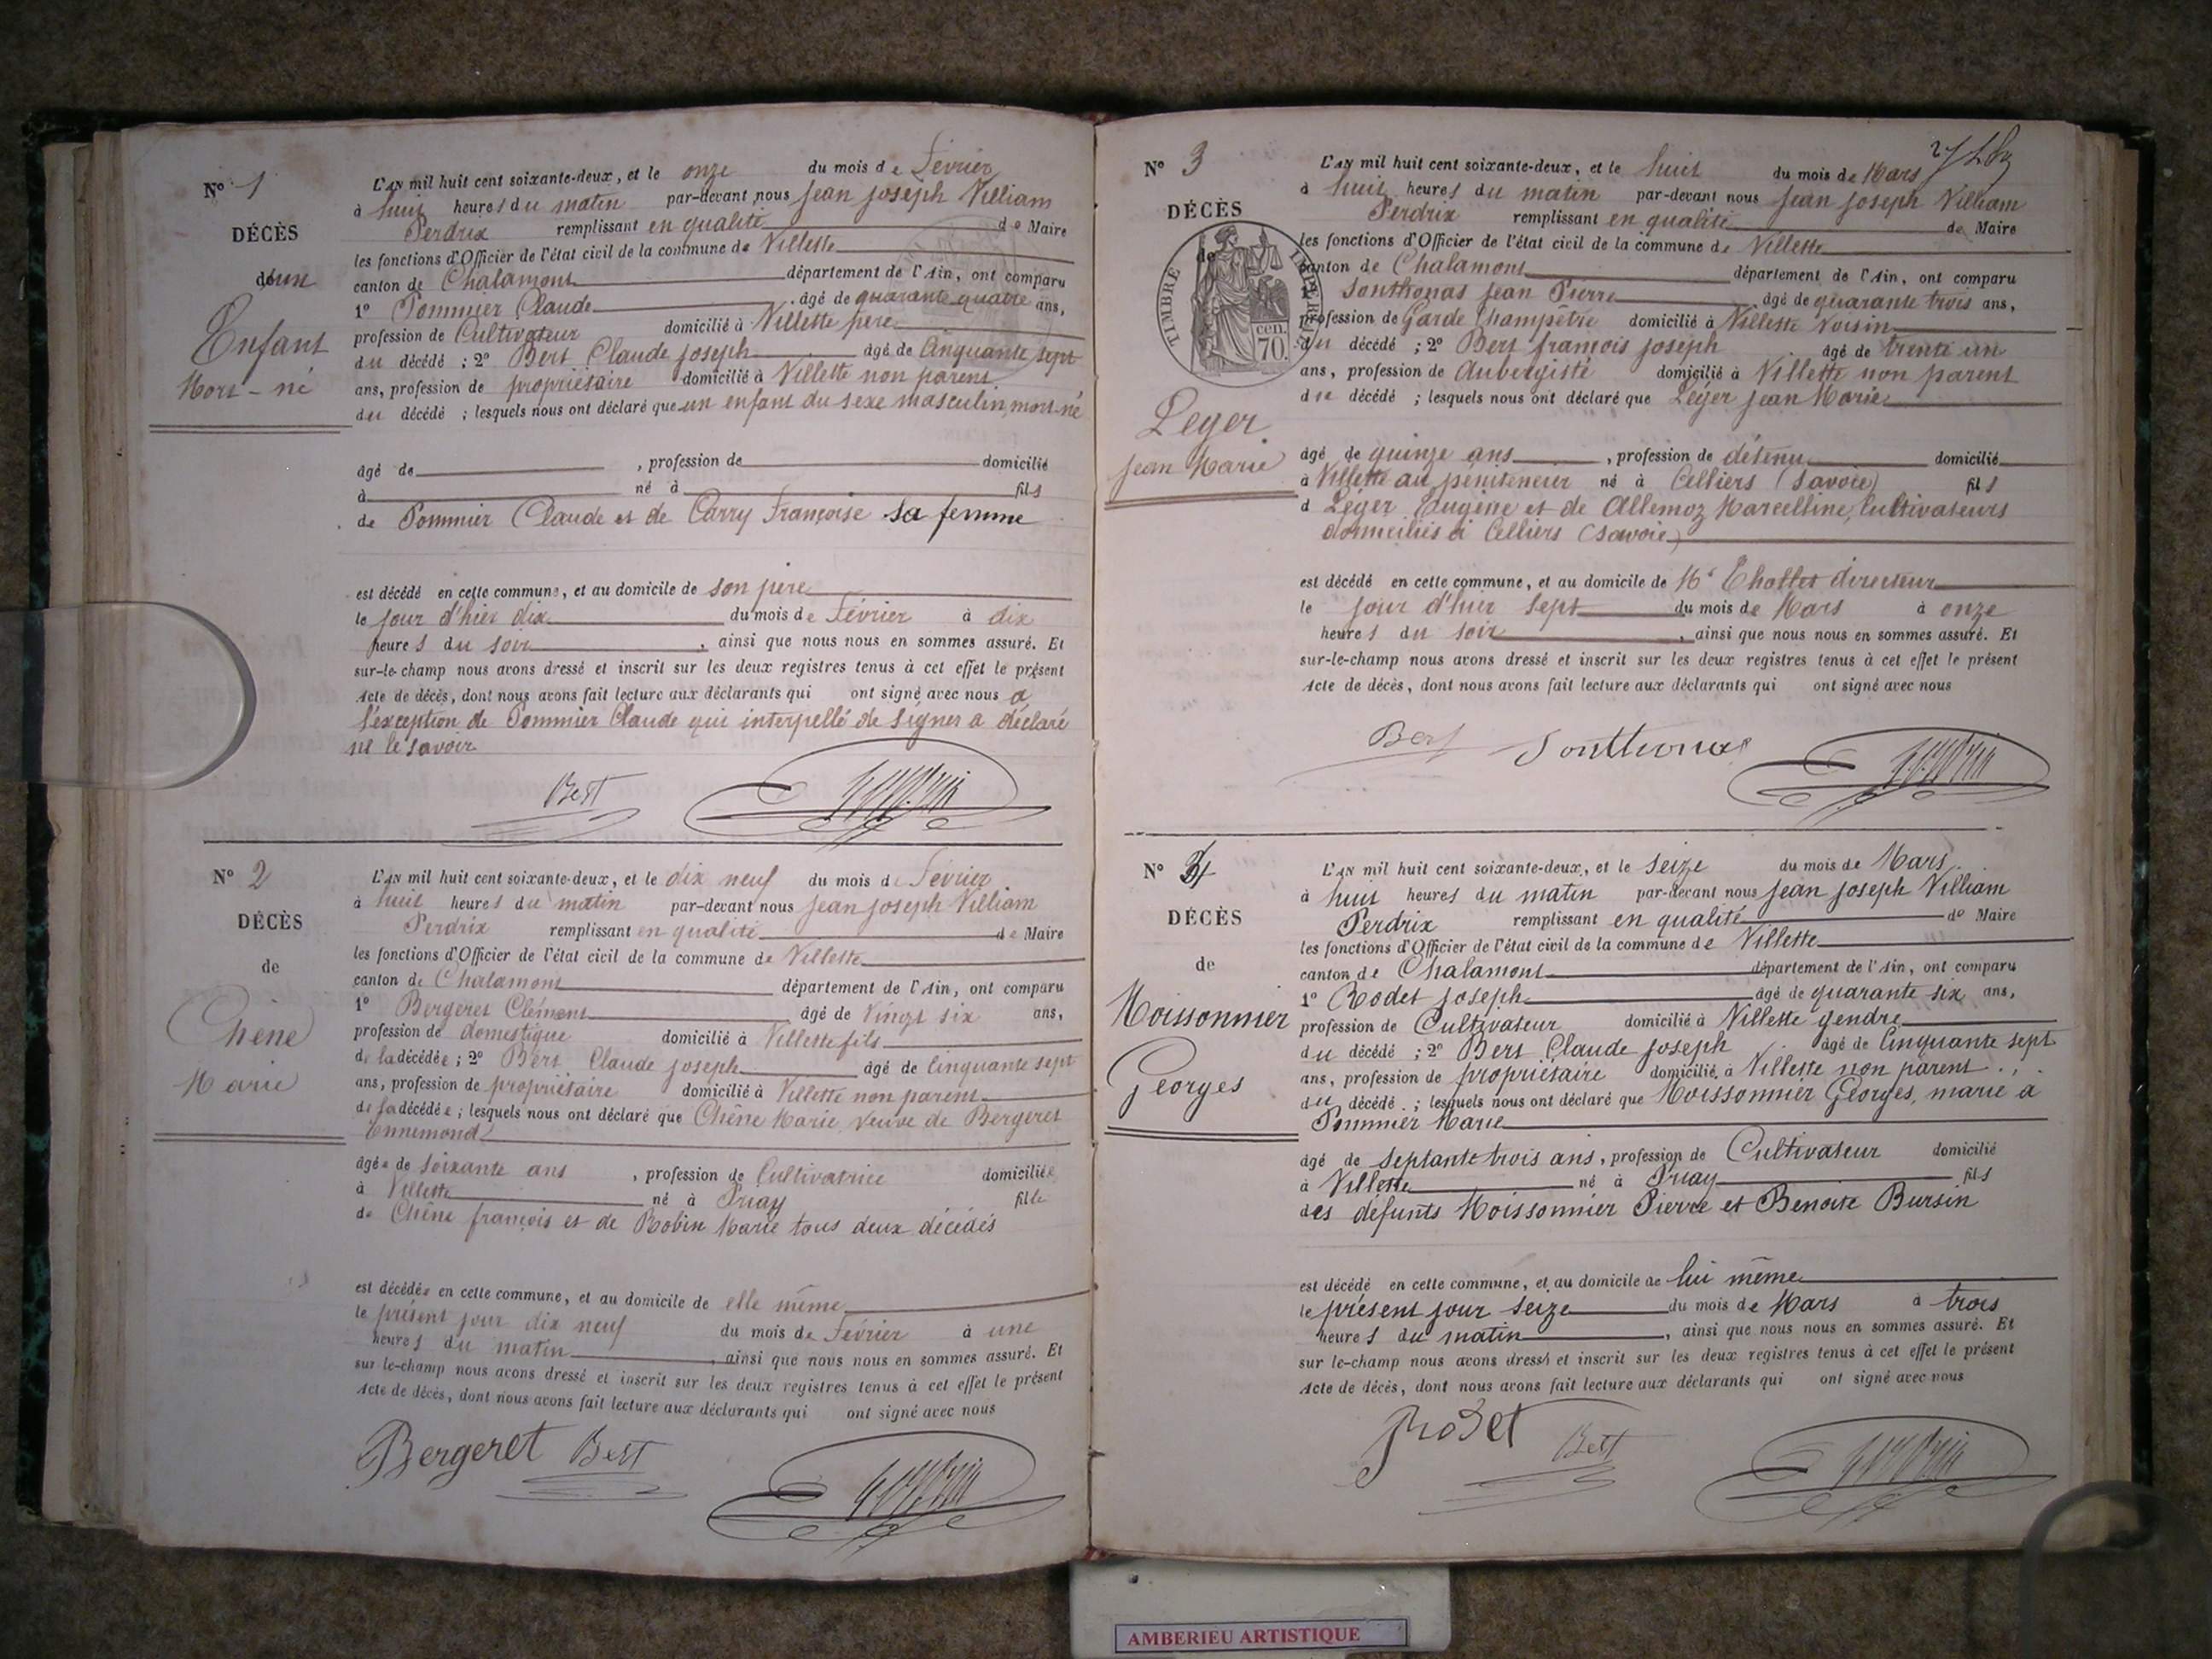 N° 1
DÉCÈS
d'un
Enfant
Mort-né
L'AN mil huit cent soixante-deux, et le onze du mois de Février
à huit heures du matin par-devant nous Jean Joseph Villiam
Perdrix remplissant en qualité de Maire
les fonctions d'Officier de l'état civil de la commune de Villette
canton de Chalamont département de l'Ain, ont comparu
1° Pommier Claude âgé de quarante quatre ans,
profession de Cultivateur domicilié à Villette père
du décédé ; 2° Bert Claude Joseph âgé de Cinquante sept
ans, profession de propriétaire domicilié à Villette non parent
du décédé ; lesquels nous ont déclaré que un enfant du sexe masculin, mort-né
âgé de , profession de domicilié
à né à fils
de Pommier Claude et de Carry Françoise sa femme
est décédé en cette commune, et au domicile de son père
le jour d'hier dix du mois de Février à dix
heures du soir , ainsi que nous nous en sommes assuré. Et
sur-le-champ nous avons dressé et inscrit sur les deux registres tenus à cet effet le présent
Acte de décès, dont nous avons fait lecture aux déclarants qui ont signé avec nous à
l'exception de Pommier Claude qui interpellé de signer a déclaré
ne le savoir
Bert
N° 2
DÉCÈS
de
Chêne
Marie
L'AN mil huit cent soixante-deux, et le dix neuf du mois de Février
à huit heures du matin par-devant nous Jean Joseph Villiam
Perdrix remplissant en qualité de Maire
les fonctions d'Officier de l'état civil de la commune de Villette
canton de Chalamont département de l'Ain, ont comparu
1° Bergeret Clément âgé de Vingt six ans,
profession de domestique domicilié à Villette fils
de la décédée ; 2° Bert Claude Joseph âgé de Cinquante sept
ans, profession de propriétaire domicilié à Villette non parent
de la décédée ; lesquels nous ont déclaré que Chêne Marie, veuve de Bergeret
Ennemond
âgée de soixante ans , profession de Cultivatrice domiciliée
à Villette né à Priay fille
de Chêne françois et de Robin Marie tous deux décédés
est décédée en cette commune, et au domicile de elle même
le présent jour dix neuf du mois de Février à une
heures du matin , ainsi que nous nous en sommes assuré. Et
sur le-champ nous avons dressé et inscrit sur les deux registres tenus à cet effet le présent
Acte de décès, dont nous avons fait lecture aux déclarants qui ont signé avec nous
Bergeret Bert
N° 3
DÉCÈS
de
TIMBRE IMPÉRIAL
cen.
70.
Leger
Jean Marie
L'AN mil huit cent soixante-deux, et le huit du mois de Mars
à huit heures du matin par-devant nous Jean Joseph Villiam
Perdrix remplissant en qualité de Maire
les fonctions d'Officier de l'état civil de la commune de Villette
canton de Chalamont département de l'Ain, ont comparu
Sonthonas Jean Pierre âgé de quarante trois ans,
profession de Garde Champêtre domicilié à Villette Voisin
du décédé ; 2° Bert françois Joseph âgé de trente un
ans, profession de Aubergiste domicilié à Villette non parent
du décédé ; lesquels nous ont déclaré que Léger Jean Marie
âgé de quinze ans , profession de détenu domicilié
à Villette au pénitencier né à Celliers (Savoie) fils
d Léger Eugène et de Allemoz Marcelline, Cultivateurs
domiciliés à Celliers (Savoie)
est décédé en cette commune, et au domicile de Mr directeur
le jour d'hier sept du mois de Mars à onze
heures du soir , ainsi que nous nous en sommes assuré. Et
sur-le-champ nous avons dressé et inscrit sur les deux registres tenus à cet effet le présent
Acte de décès, dont nous avons fait lecture aux déclarants qui ont signé avec nous
Bert Sonthonas
N° 4
DÉCÈS
de
Moissonnier
Georges
L'AN mil huit cent soixante-deux, et le seize du mois de Mars
à huit heures du matin par-devant nous Jean Joseph Villiam
Perdrix remplissant en qualité de Maire
les fonctions d'Officier de l'état civil de la commune de Villette
canton de Chalamont département de l'Ain, ont comparu
1° Rodet Joseph âgé de quarante six ans,
profession de Cultivateur domicilié à Villette gendre
du décédé ; 2° Bert Claude Joseph âgé de Cinquante sept
ans, profession de propriétaire domicilié à Villette non parent
du décédé ; lesquels nous ont déclaré que Moissonnier Georges, marié à
Pommier Marie
âgé de septante trois ans, profession de Cultivateur domicilié
à Villette né à Priay fils
des défunts Moissonnier Pierre et Benoite Bursin
est décédé en cette commune, et au domicile de lui même
le présent jour seize du mois de Mars à trois
heures du matin , ainsi que nous nous en sommes assuré. Et
sur le-champ nous avons dressé et inscrit sur les deux registres tenus à cet effet le présent
Acte de décès, dont nous avons fait lecture aux déclarants qui ont signé avec nous
Rodet Bert
AMBERIEU ARTISTIQUE